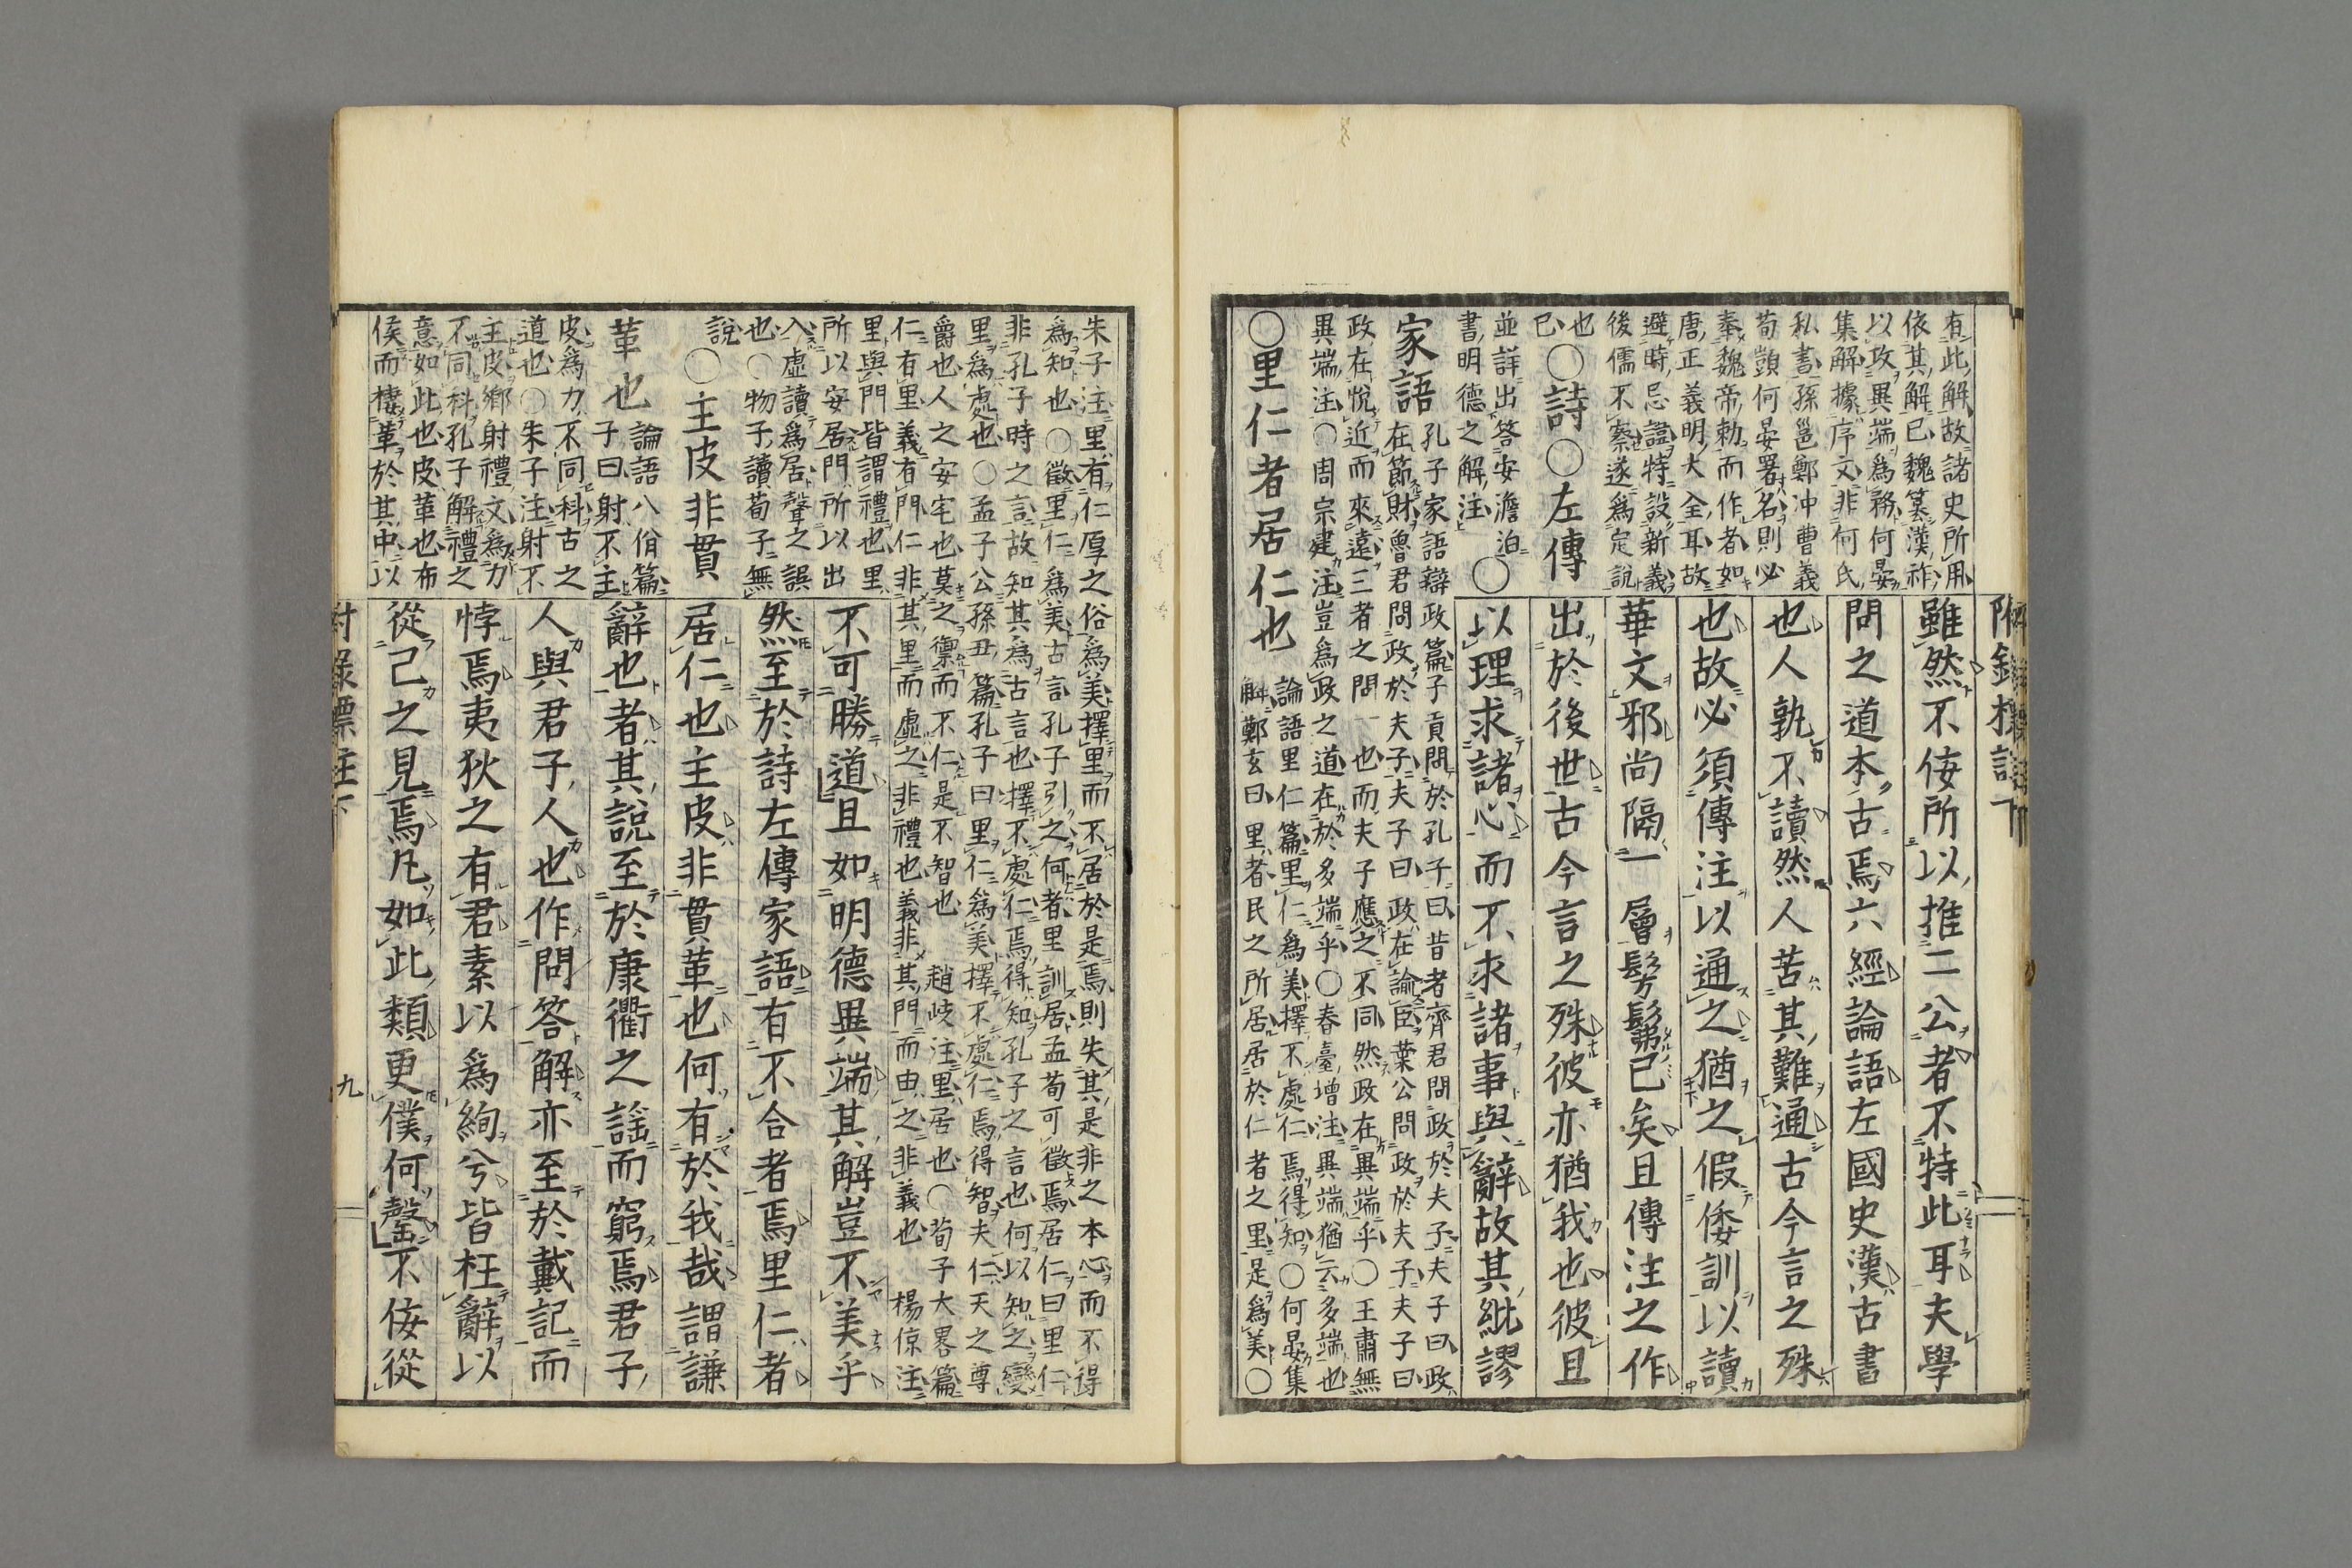 附録標註下
有此解故諸史所用
依其解已魏篡漢祚
以攻異端爲務何晏
集解據序文非何氏
私書孫邕鄭冲曹羲
荀顗何晏署名則必
奉魏帝勅而作者如
唐正義明大全耳故
避時忌諱特設新義
後儒不察遂爲定說
也
已〇詩〇左傳
並詳出答安澹泊
書明德之解注 〇
家語 孔子家語辯政篇子貢問於孔子曰昔者齊君問政於夫子夫子曰政
在節財魯君問政於夫子夫子曰政在論臣葉公問政於夫子夫子曰
政在悅近而來遠三者之問一也而夫子應之不同然政在異端乎〇王肅無
異端注〇周宗建注豈爲政之道在於多端乎〇春臺增注異端猶云多端也
〇里仁者居仁也 論語里仁篇里仁爲美擇不處仁焉得知〇何晏集
解鄭玄曰里者民之所居居於仁者之里是爲美〇
雖然不侫所以推二公者不特此耳夫學
問之道本古焉六經論語左國史漢古書
也人孰不讀然人苦其難通古今言之殊
也故必須傳注以通之猶之假倭訓以讀
華文邪尚隔一層髣髴已矣且傳注之作
出於後世古今言之殊彼亦猶我也彼且
以理求諸心而不求諸事與辭故其紕謬
朱子注里有仁厚之俗爲美擇里而不居於是焉則失其是非之本心而不得
爲知也〇徵里仁爲美古言孔子引之何者里訓居孟荀可徵焉居仁曰里仁
非孔子時之言故知其爲古言也擇不處仁焉得知孔子之言也何以知之變
里爲處也〇孟子公孫丑篇孔子曰里仁爲美擇不處仁焉得智夫仁天之尊
爵也人之安宅也莫之禦而不仁是不智也 趙岐注里居也〇荀子大畧篇
仁有里義有門仁非其里而虛之非禮也義非其門而由之非義也 楊倞注
里與門皆謂禮也里
所以安居門所以出
入虛讀爲居聲之誤
也〇物子讀荀子無
說
〇主皮非貫
革也 論語八佾篇
子曰射不主
皮爲力不同科古之
道也〇朱子注射不
主皮鄉射禮文爲力
不同科孔子解禮之
意如此也皮革也布
侯而棲革於其中以
不可勝道且如明德異端其解豈不美乎
然至於詩左傳家語有不合者焉里仁者
居仁也主皮非貫革也何有於我哉謂謙
辭也者其說至於康衢之謡而窮焉君子
人與君子人也作問答解亦至於戴記而
悖焉夷狄之有君素以爲絢兮皆枉辭以
從己之見焉凡如此類更僕何罄不侫從
附録標註下
九